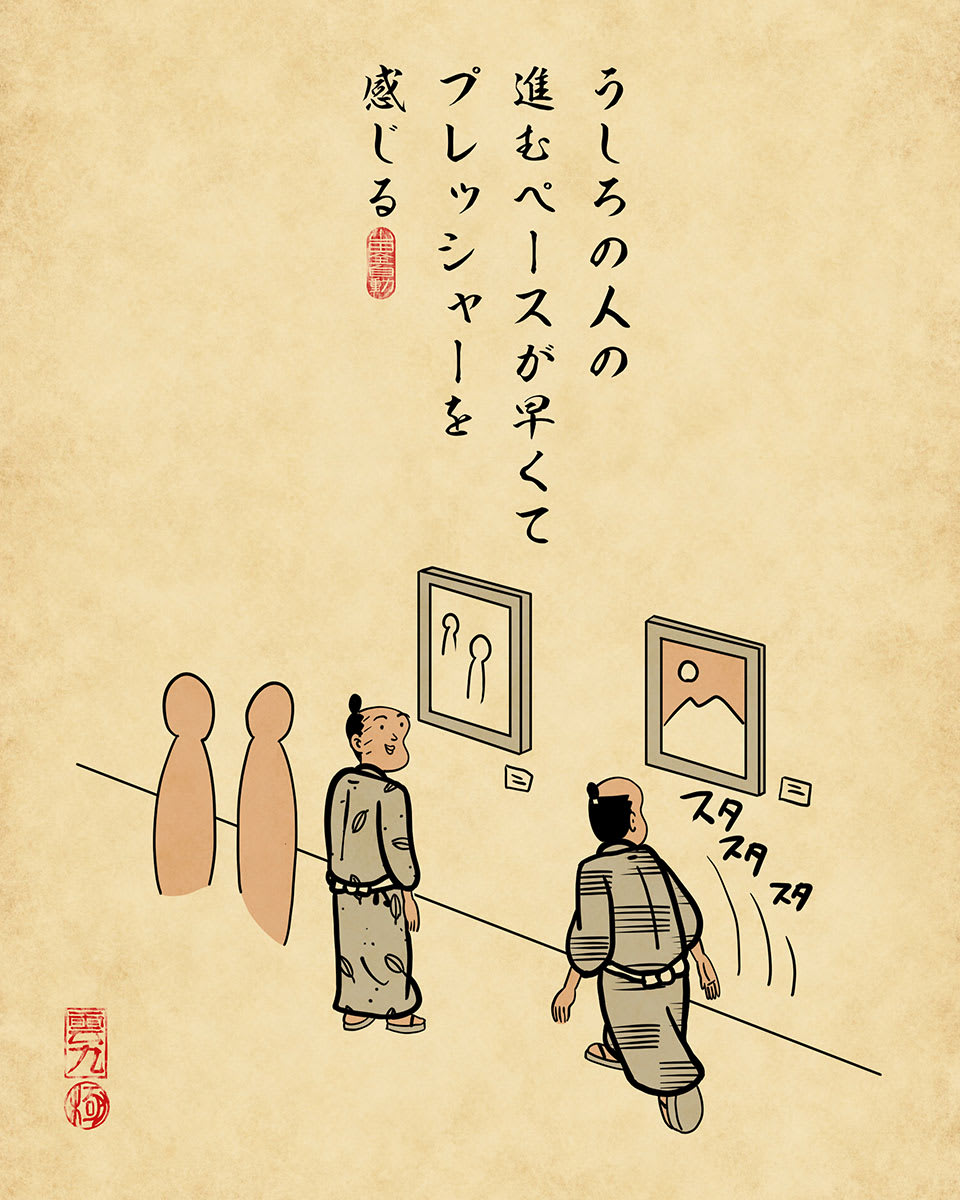 うしろの人の
進むペースが早くて
プレッシャーを
感じる
スタ
スタ
スタ
雲丸
極